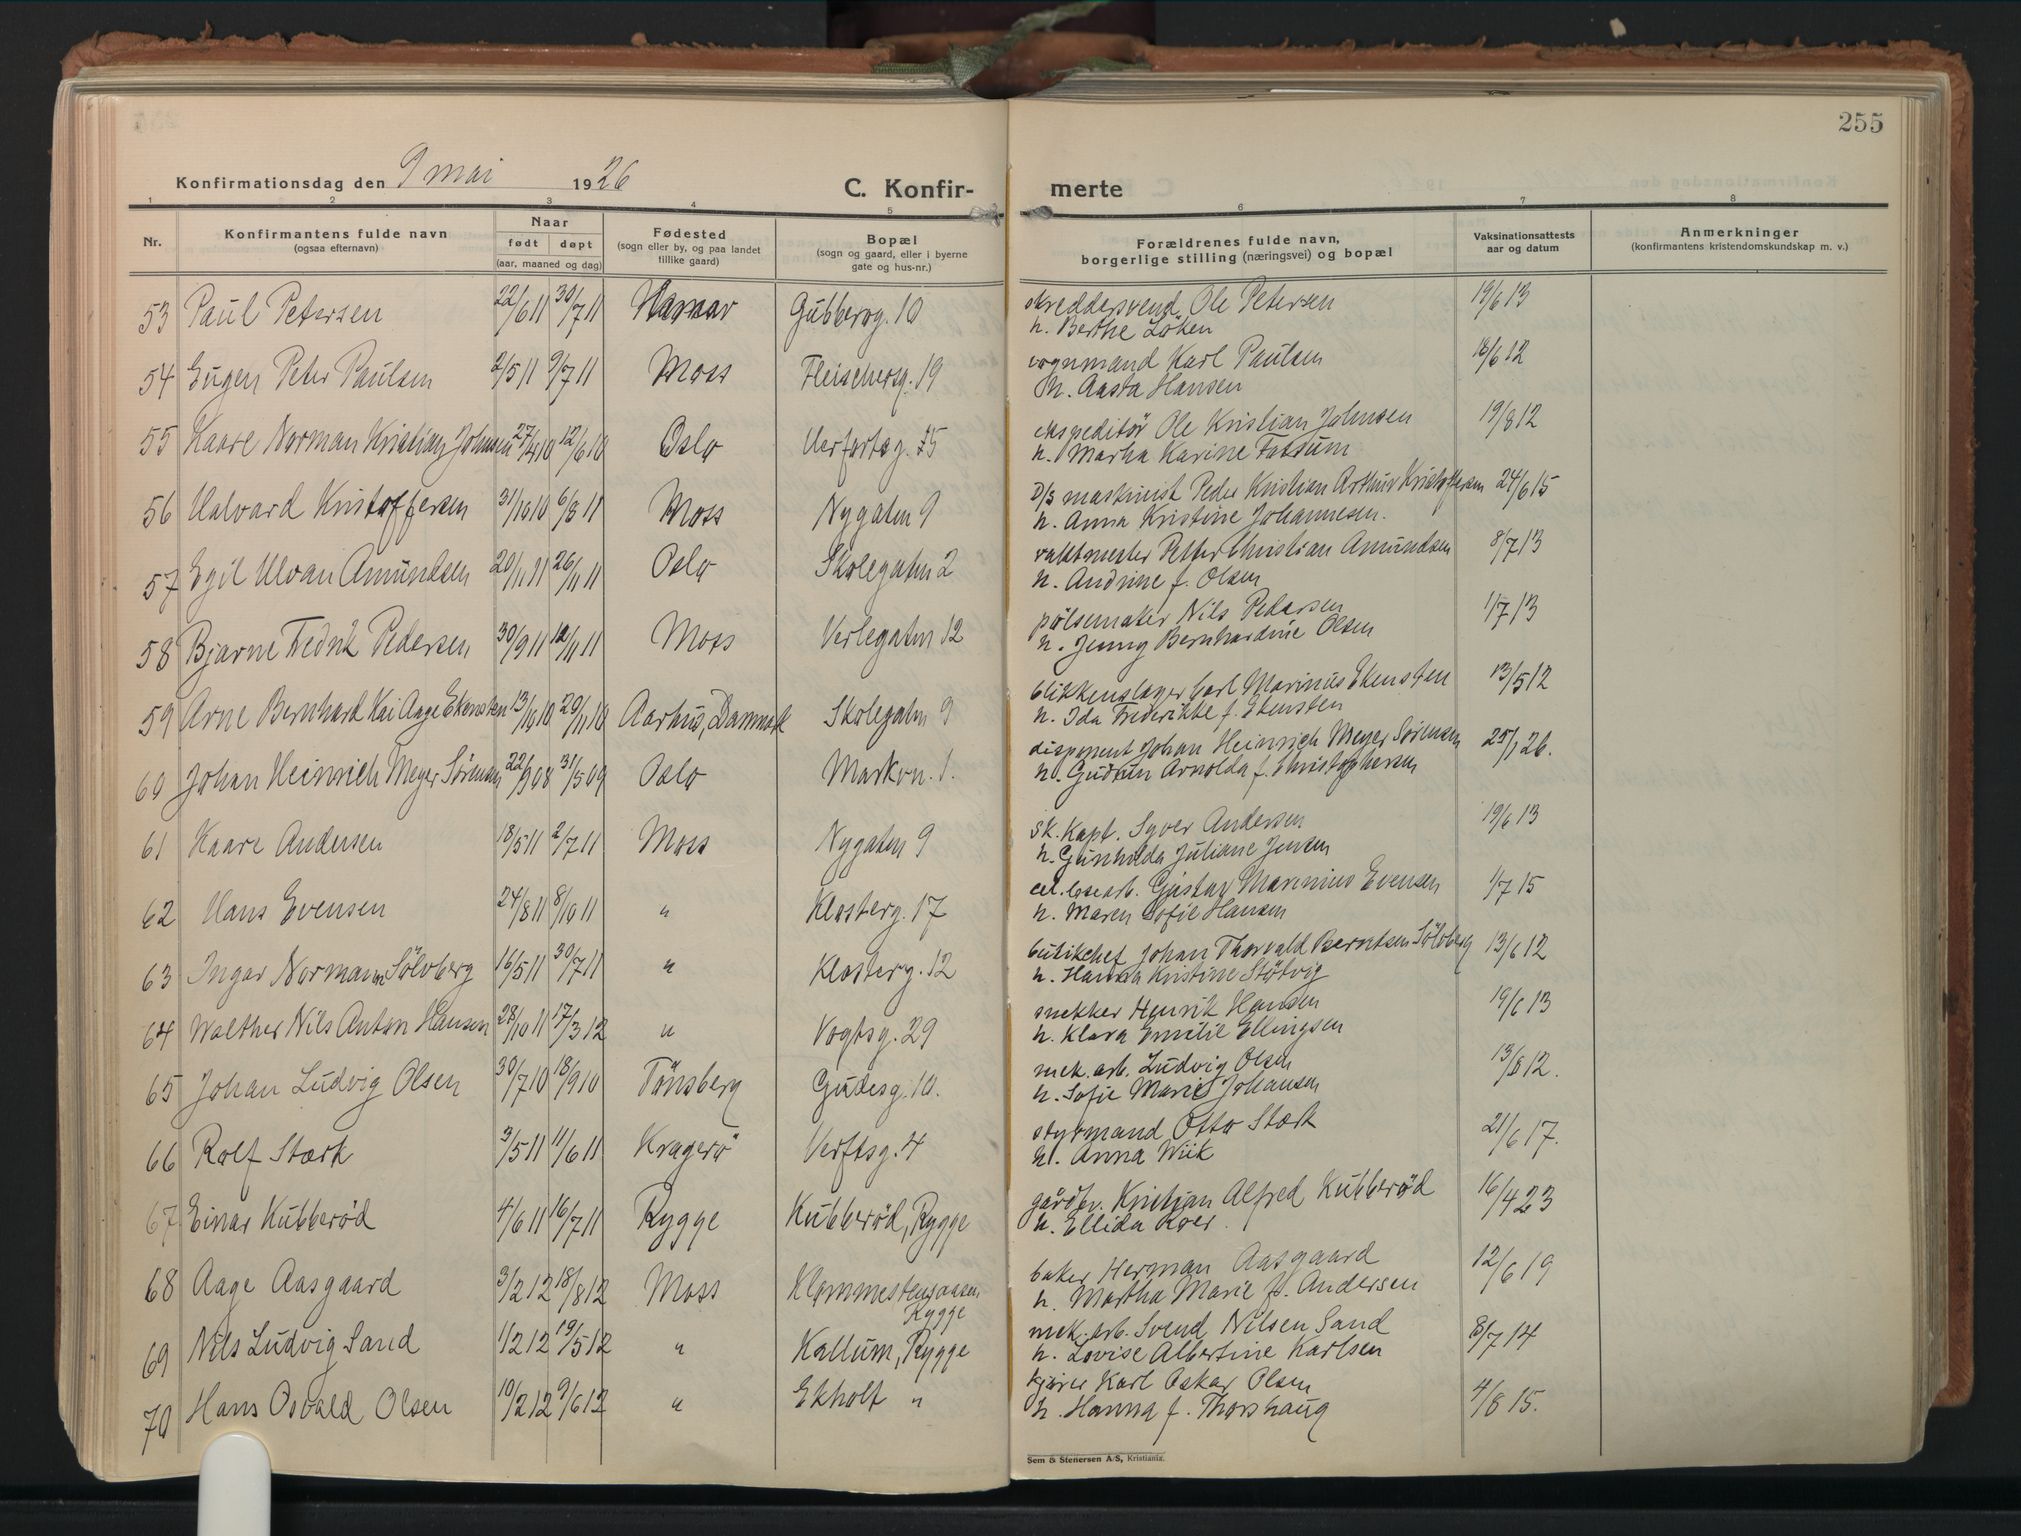 255
Konfirmationsdag den 9 mai 1926
C. Konfir-
merte
1 2 3 4 5 6 7 8
Nr.
Konfirmantens fulde navn
(ogsaa efternavn)
Naar
født
døpt
(aar, maaned og dag)
Fødested
(sogn eller by, og paa landet
tillike gaard)
Bopæl
(sogn og gaard, eller i byerne
gate og hus-nr.)
Forældrenes fulde navn,
borgerlige stilling (næringsvei) og bopæl
Vaksinationsattests
aar og datum
Anmerkninger
(konfirmantens kristendomskundskap m. v.)
53 Paul Petersen 22/6 11 30/7 11 Hamar Gubberog. 10 skreddersvend Ole Petersen 19/6 13
h. Berthe Löken
54 Eugen Peter Paulsen 2/5 11 9/7 11 Moss Fleischersg. 19 vognmand Karl Paulsen 18/6 12
h. Aasta Hansen
55 Kaare Norman Kristian Johnsen 27/4 10 12/6 10 Oslo Verftsg. 15 ekspeditör Ole Kristian Johnsen 19/8 12
h. Martha Karine Fossum
56 Halvard Kristoffersen 31/10 10 6/8 11 Moss Nygaten 9 D/S maskinist Peder Kristian Arthur Kristoffersen 24/6 15
h. Anna Kristine Johannesen.
57 Egil Ulvan Amundsen 20/11 11 26/11 11 Oslo Skolegaten 2 vaktmester Petter Christian Amundsen 8/7 13
h. Andrine f. Olsen
58 Bjarne Fredrik Pedersen 30/9 11 12/11 11 Moss Verlegaten 12 pölsemaker Nils Pedersen 1/7 13
h. Jenny Bernhardine Olsen
59 Arne Bernhard Kai Aage Ekensten 13/10 10 20/11 10 Aarhus, Danmark Skolegaten 9 blikkenslager Carl Marinus Ekensten 13/5 12
h. Ida Frederikke f. Ekensten
60 Johan Heinrich Meyer Sörensen 22/9 08 31/5 09 Oslo Markvn. 1. disponent Johan Heinrich Meyer Sörensen 25/1 26.
h. Gudrun Arnolda f. Christophersen
61 Kaare Andersen 18/5 11 2/7 11 Moss Nygaten 9 sk. kapt. Syver Andersen 19/6 13
h. Gunhilda Juliane Jensen
62 Hans Evensen 24/8 11 8/10 11 " Klosterg. 17 cel. losearb. Gustav Marinius Evensen 1/7 15
h. Maren Sofie Hansen
63 Ingar Normann Sölvberg 16/5 11 30/7 11 " Klosterg. 12 butikchef Johan Thorvald Berntsen Sölvberg 13/6 12
h. Hanna Kristine Stötvig
64 Walther Nils Anton Hansen 28/10 11 17/3 12 " Vogtsg. 29 snekker Henrik Hansen 19/6 13
h. Klara Emilie Ellingsen
65 Johan Ludvig Olsen 30/7 10 18/9 10 Tönsberg Gudesg. 10. mek. arb. Ludvig Olsen 13/8 12.
h. Sofie Marie Johansen
66 Rolf Stærk 3/5 11 11/6 11 Kragerö Verftsg. 4 styrmand Otto Stærk 21/6 17.
h. Anna Wiik
67 Einar Kubberød 4/6 11 16/7 11 Rygge Kubberød, Rygge gårdbr. Kristian Alfred Kubberød 16/4 23
h. Ellida Roer.
68 Aage Aasgaard 3/2 12 18/8 12 Moss Klommestensaasen, baker Herman Aasgaard 12/6 19
Rygge h. Martha Marie f. Andersen
69 Nils Ludvig Sand 1/2 12 19/5 12 " Kallum, Rygge mek. arb. Svend Nilsen Sand 8/7 14
h. Lovise Albertine Karlsen
70 Hans Osvald Olsen 10/2 12 9/6 12 " Ekholt " kjører Karl Oskar Olsen 4/8 15.
h. Hanna f. Thorshaug
Sem & Stenersen A/S, Kristiania.